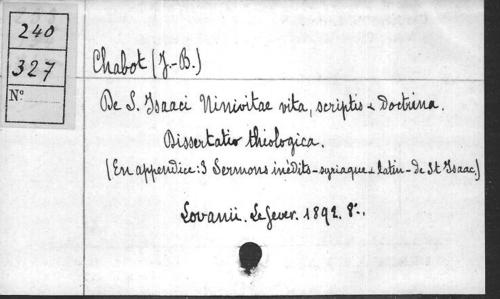 240
327
N°
Chabot (J.-B.)
De S. Isaaci Ninivitae vita, scriptis & Doctrina.
Dissertatio theologica.
(En appendice: 3 Sermons inédits - syriaque & latin - de St Isaac.)
Lovanii. Lefever. 1892. 8°.